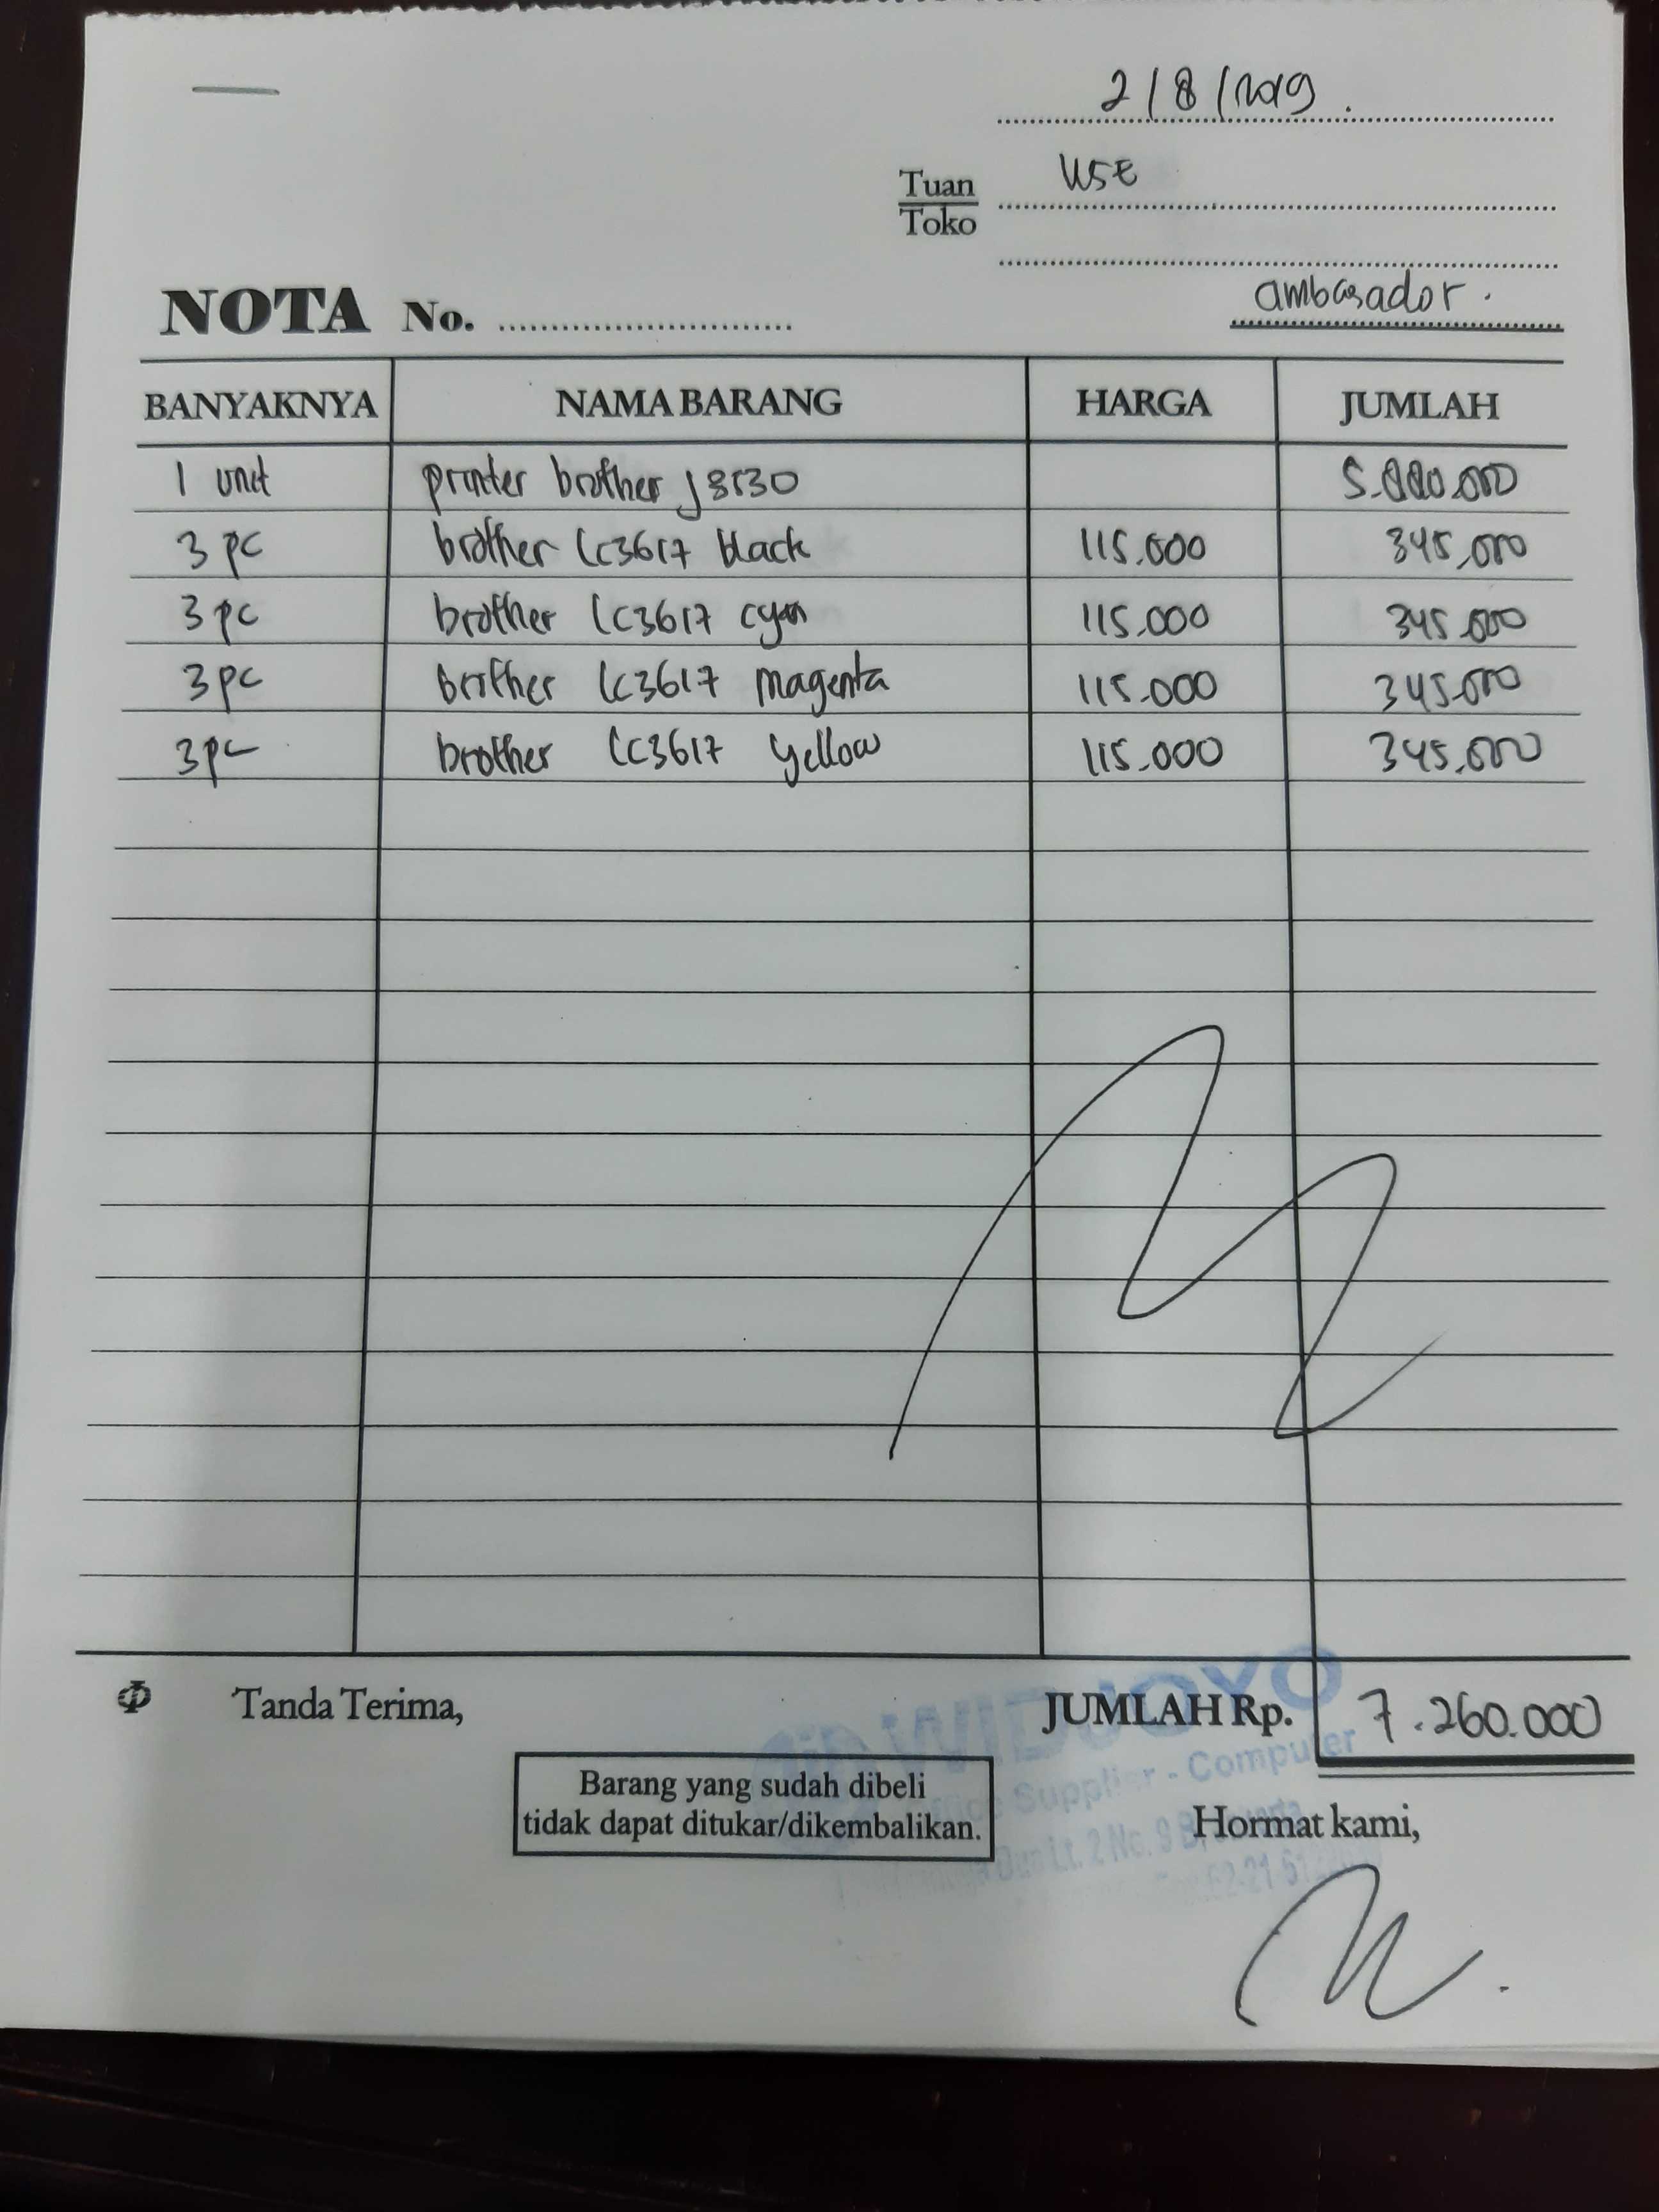 2/8/2019.
Tuan
Toko
USE
ambasador.
NOTA No.
BANYAKNYA NAMA BARANG HARGA JUMLAH
1 unit printer brother j3530
3 pc brother Lc3617 black 115.000 345.000
3 pc brother Lc3617 cyan 115.000 345.000
3 pc brother Lc3617 magenta 115.000 345.000
3 pc brother Lc3617 yellow 115.000 345.000
Tanda Terima,
JUMLAH Rp. 7.260.000
Barang yang sudah dibeli
tidak dapat ditukar/dikembalikan.
Hormat kami,
WIDJOYO
Supplier - Computer
Lt. 2 No. 9 B